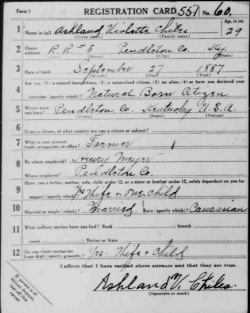 Form 1 REGISTRATION CARD 551 No. 60
1 Name in full Ashland Violette Chiles Age, in yrs. 29
(Given name) (Family name)
2 Home address R.R. # 5 Pendleton Co. Ky.
3 Date of birth September 27 1887
(Month) (Day) (Year)
4 Are you (1) a natural-born citizen, (2) a naturalized citizen, (3) an alien, (4) or have you declared your intention (specify which)?
Natural Born Citizen
5 Where were you born? Pendleton Co. Kentucky U.S.A.
(Town) (State) (Nation)
6 If not a citizen, of what country are you a citizen or subject?
7 What is your present trade, occupation, or office? Farmer
8 By whom employed? Henry
Where employed? Pendleton Co.
9 Have you a father, mother, wife, child under 12, or a sister or brother under 12, solely dependent on you for support (specify which)?
Wife & One child
10 Married or single (which)? Married Race (specify which)? Caucasian
11 What military service have you had? Rank
branch
years Nation or State
12 Do you claim exemption from draft (specify grounds)? Yes. Wife & Child
I affirm that I have verified above answers and that they are true.
Ashland V. Chiles
(Signature or mark)